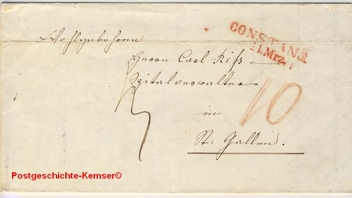 CONSTANZ
11.Mrz.
Wohlgebohrn
Herrn Carl Riß
Spitalverwalter
in
St. Gallen.
10
Postgeschichte-Kemser©